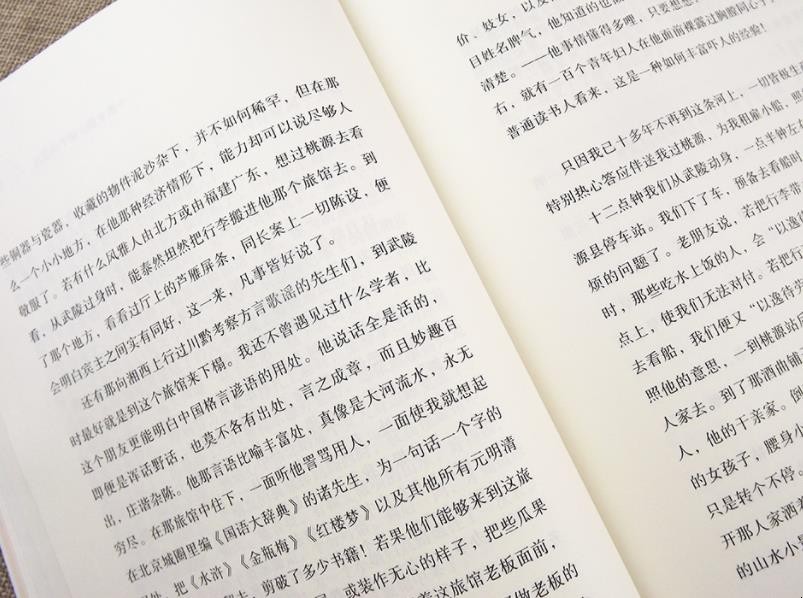 些铜器与瓷器，收藏的物件泥沙杂下，并不如何稀罕，但在那
么一个小小地方，在他那种经济情形下，能力却可以说尽够人
敬服了。若有什么风雅人由北方或由福建广东，想过桃源去看
看，从武陵过身时，能泰然坦然把行李搬进他那个旅馆去。到
了那个地方，看看过厅上的芦雁屏条，同长案上一切陈设，便
会明白宾主之间实有同好，这一来，凡事皆好说了。
还有那向湘西上行过川黔考察方言歌谣的先生们，到武陵
时最好就是到这个旅馆来下榻。我还不曾遇见过什么学者，比
这个朋友更能明白中国格言谚语的用处。他说话全是活的，
即便是诨话野话，也莫不各有出处，言之成章，而且妙趣百
出，庄谐杂陈。他那言语比喻丰富处，真像是大河流水，永无
穷尽。在那旅馆中住下，一面听他詈骂用人，一面使我就想起
在北京城圈里编《国语大辞典》的诸先生，为一句话一个字的
把《水浒》《金瓶梅》《红楼梦》以及其他所有元明清
剪破了多少书籍！若果他们能够来到这旅
或装作无心的样子，把些瓜果
这旅馆老板面前，
做老板的
价、妓女，以及
目姓名脾气，他知道的也
清楚。——他事情懂得多哩，只要想想，
右，就有一百个青年妇人在他面前裸露过胸膛同心子
普通读书人看来，这是一种如何丰富吓人的经验！
只因我已十多年不再到这条河上，一切皆极生
特别热心答应伴送我过桃源，为我租雇小船，照
十二点钟我们从武陵动身，一点半钟左右
源县停车站。我们下了车，预备去看船时
烦的问题了。老朋友说，若把行李带
时，那些吃水上饭的人，会“以逸
点上，使我们无法对付。若把行
去看船，我们便又“以逸待劳
照他的意思，一到桃源站
人家去。到了那酒曲铺
人，他的干亲家。倒
的女孩子，腰身小
只是转个不停。
开那人家酒
的山水小